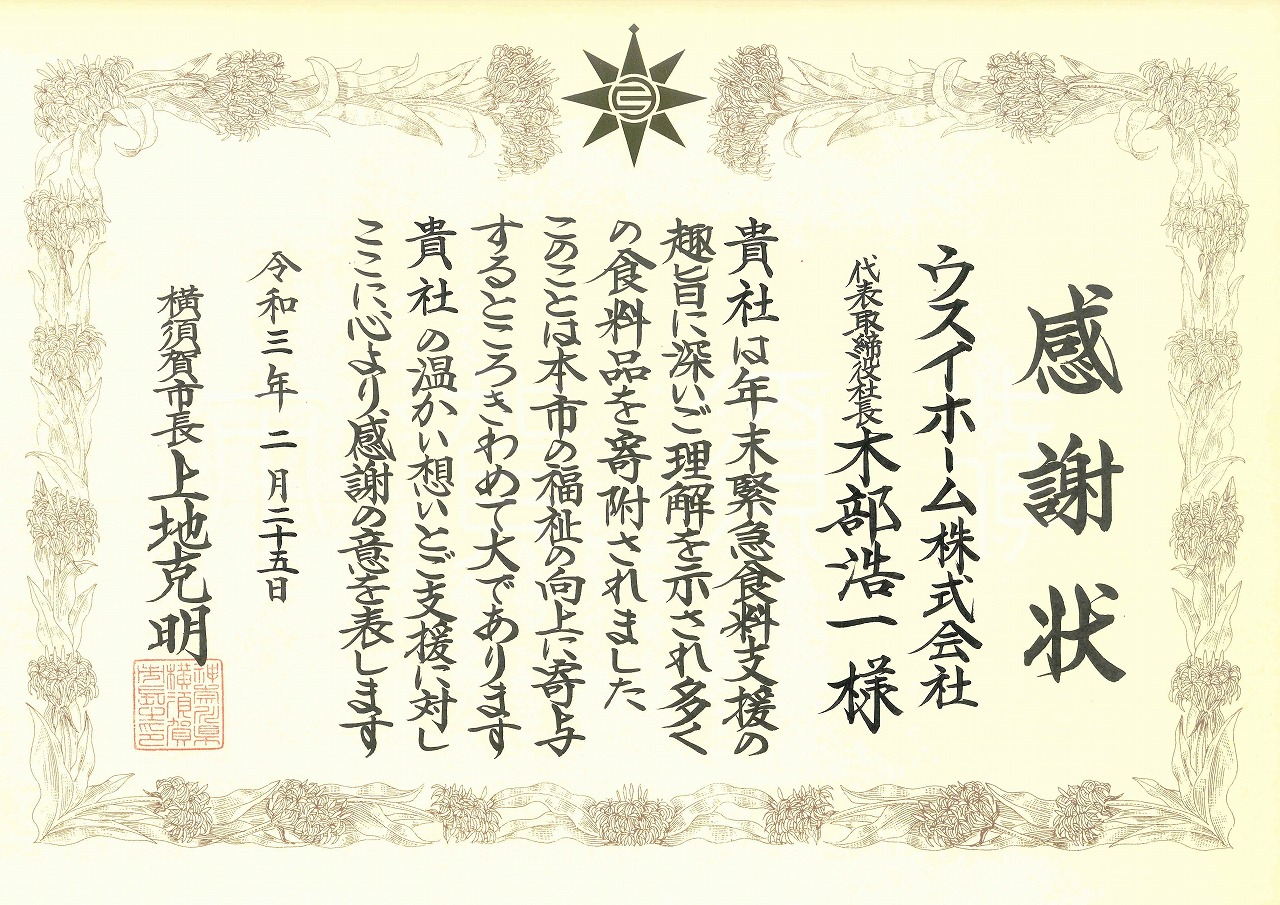 感謝状
ウスイホーム株式会社
代表取締役社長 木部浩一様
貴社は年末緊急食料支援の
趣旨に深いご理解を示され多く
の食料品を寄附されました
このことは本市の福祉の向上に寄与
するところきわめて大であります
貴社の温かい想いとご支援に対し
ここに心より感謝の意を表します
令和三年二月二十五日
横須賀市長 上地克明
神奈川県
横須賀
市長之印